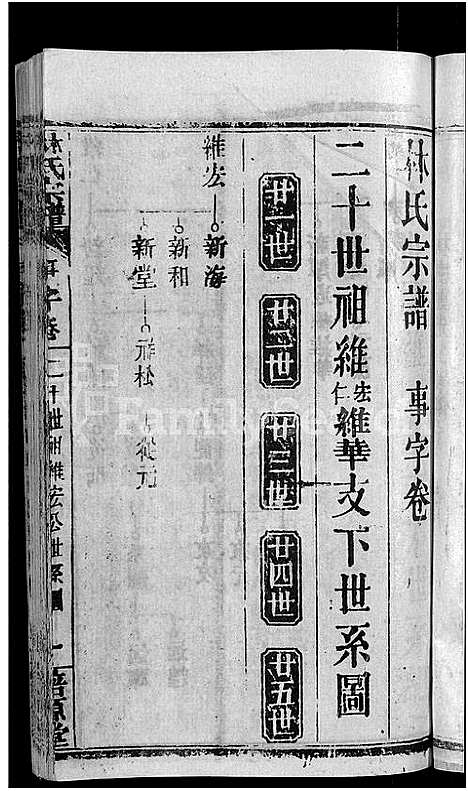 林氏宗譜 事字卷
二十世祖維宏仁維華支下世系圖
廿一世 廿二世 廿三世 廿四世 廿五世
維宏 新海
新和
新堂 祥松 從元
林氏宗譜 事字卷 二十世祖維宏公世系圖 一